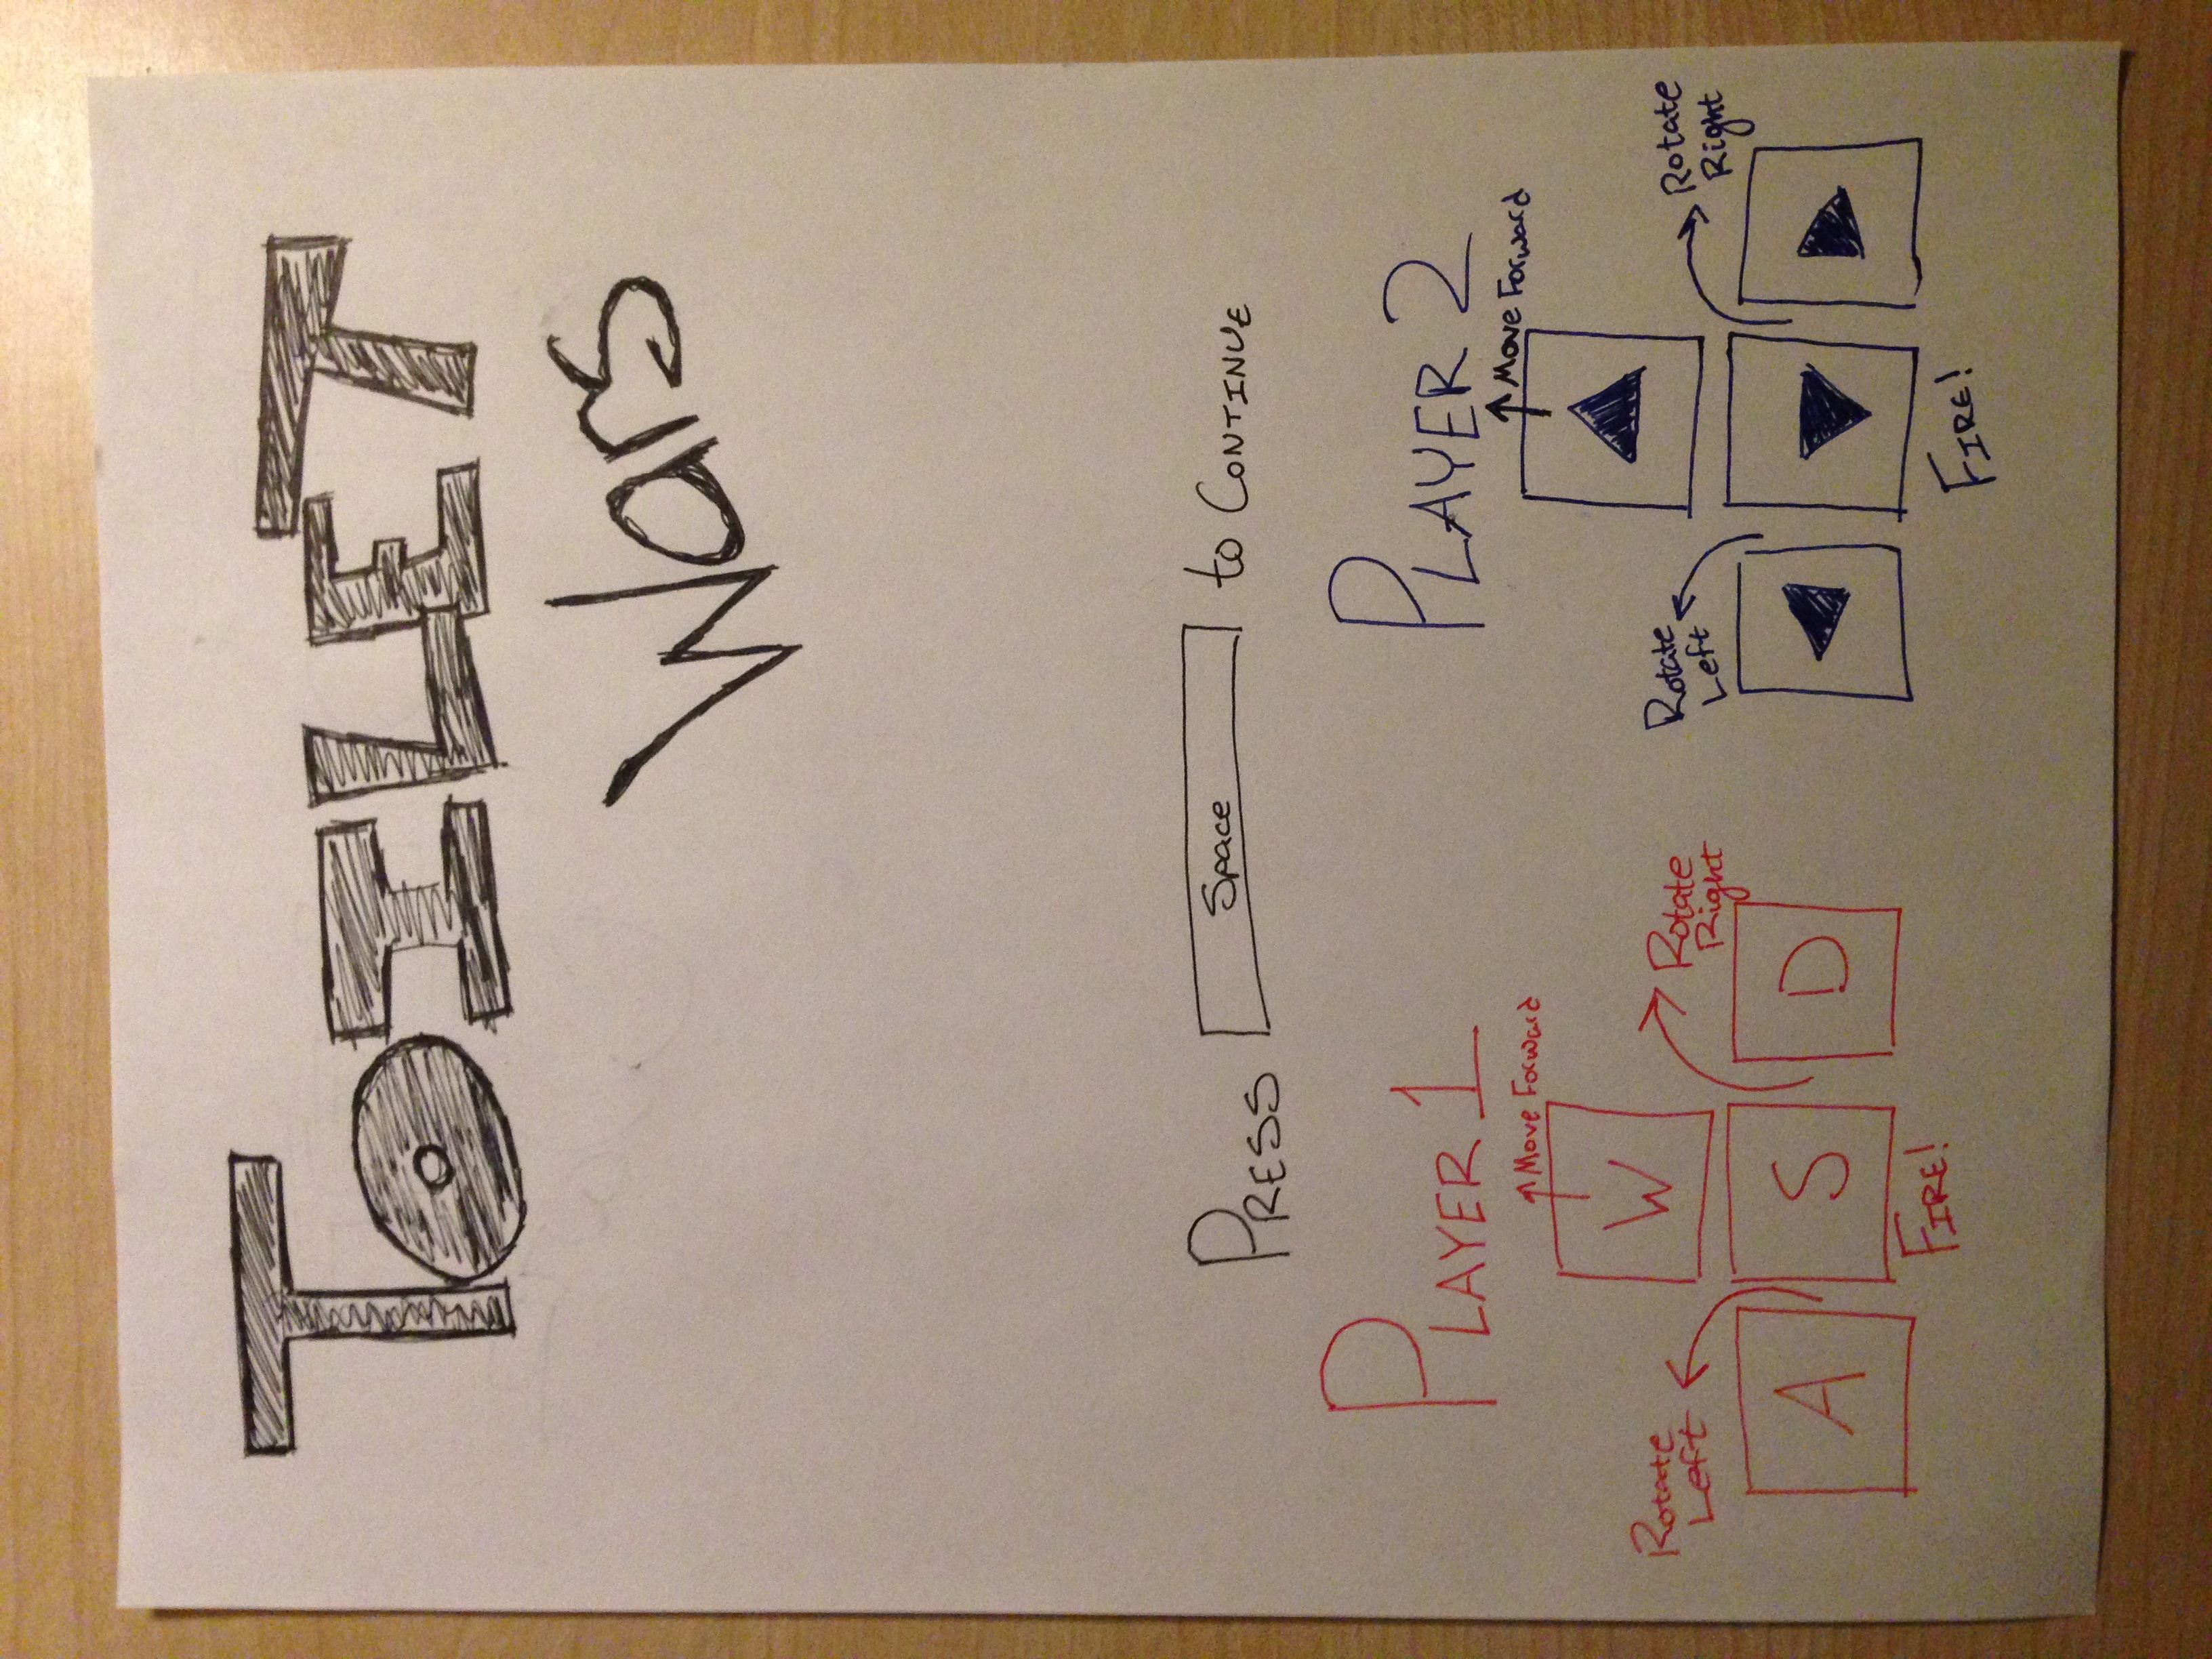 TOILET
Wars
PRESS Space to CONTINUE
PLAYER 1
Move Forward
W
Rotate
Left
Rotate
Right
A S D
FIRE!
PLAYER 2
Move Forward
Rotate
Left
Rotate
Right
FIRE!